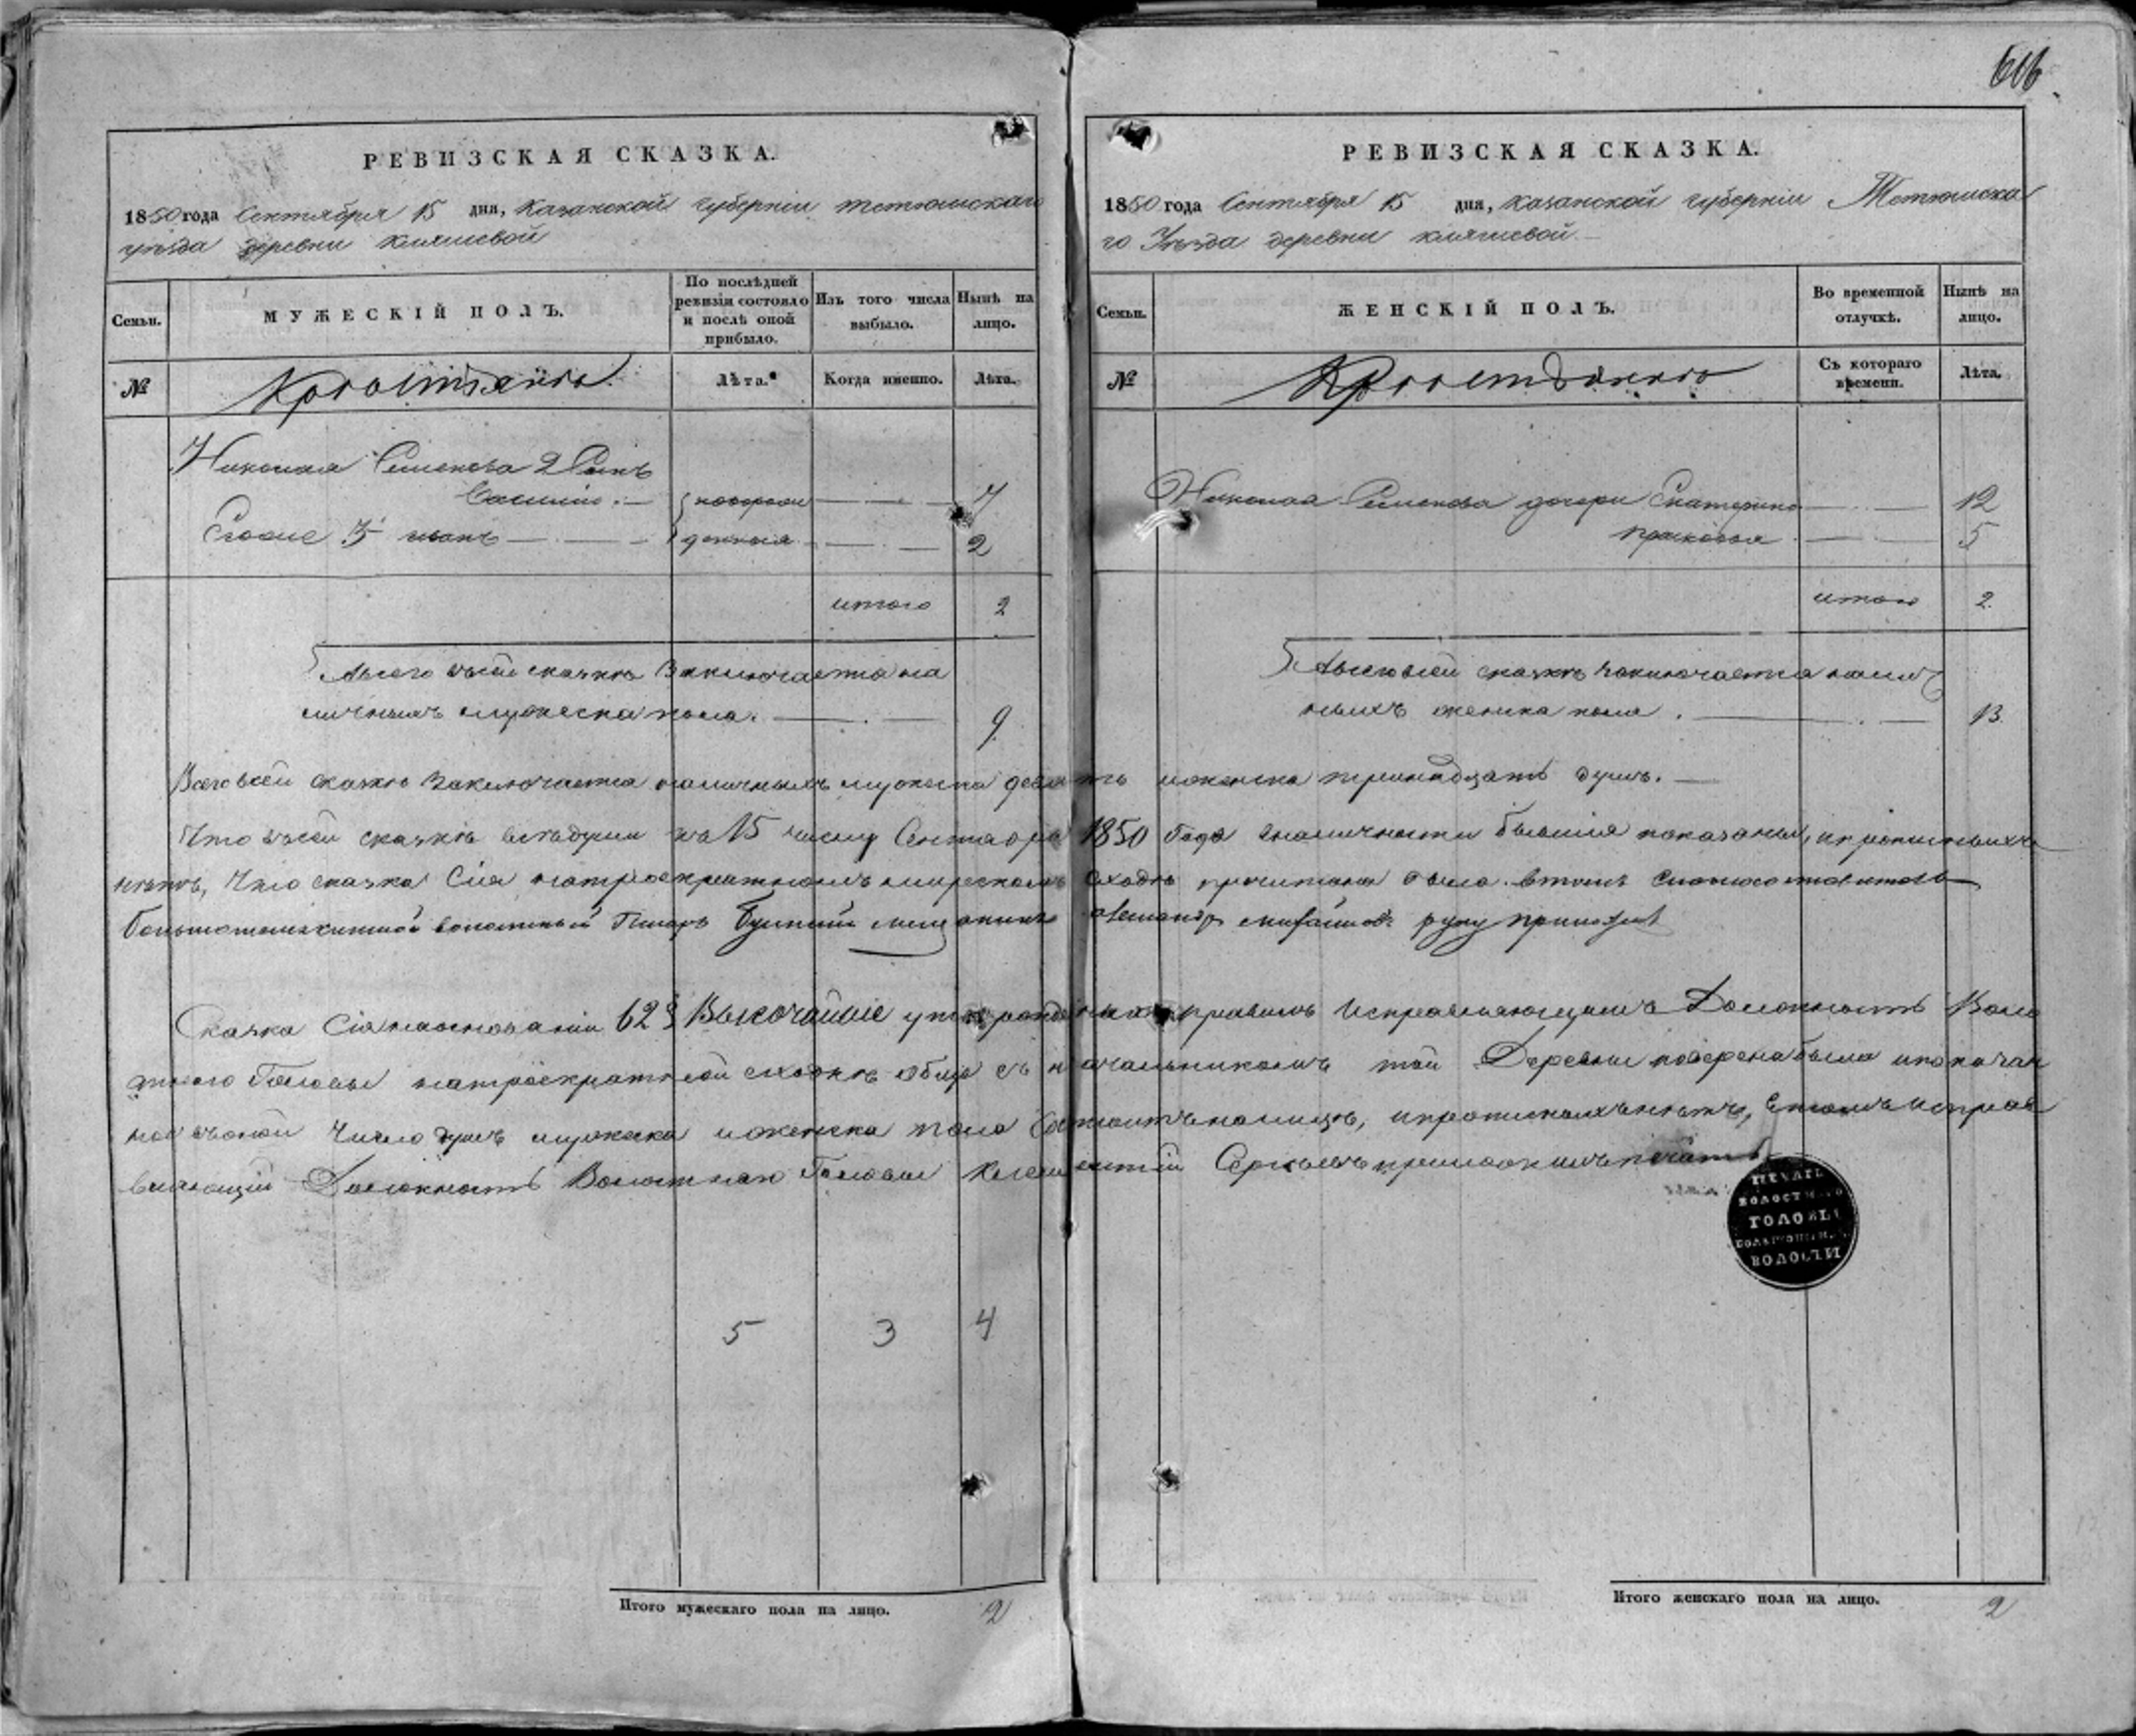 606
РЕВИЗСКАЯ СКАЗКА.
1850 года Сентября 15 дня, Казанской губерніи Тетюшскаго
уезда деревни Кляшевой
Семьи.
МУЖЕСКІЙ ПОЛЪ.
По послѣдней ревизіи состояло и послѣ оной прибыло.
Изъ того числа выбыло.
Нынѣ на лицо.
№
Крестьянъ.
Лѣта.
Когда именно.
Лѣта.
Николая Семенова 2 Сынъ
Василій новорож 7
Егоже 3 иванъ денныя 2
итого 2
Авсего всей сказкѣ Заключается на
личныхъ мужеска пола. 9.
РЕВИЗСКАЯ СКАЗКА.
1850 года Сентября 15 дня, Казанской губерніи Тетюшска
го Уѣзда деревни Кляшевой
Семьи.
ЖЕНСКІЙ ПОЛЪ.
Во временной отлучкѣ.
Нынѣ на лицо.
№
Съ котораго времени.
Лѣта.
Николая Семенова дочери Екатерина 12
прасковья 5
итого 2.
Авсего всей сказкѣ заключается налич
ныхъ женска пола. 13.
Всего всей сказкѣ Заключается наличныхъ мужеска девять иженска тринадцать душъ.
Что всей сказкѣ всѣ души на 15 число Сентября 1850 Года вналичности бывшія показаны, ипрописныхъ
нѣтъ, Что сказка Сія натроекратномъ мирскомъ Сходѣ прочитана была. втомъ
волостный Писарь мещанинъ руку приложилъ
Сказка Сія наосновании 62 § Высочайше утвержденныхъ правилъ Исправляющимъ Должность Воло
стнаго Головы натроекратной сходкѣ обще съ начальникомъ той Деревни поверена была
число душъ мужеска иженска пола Состоитъ налицо, ипрописныхъ нѣтъ, Втомъ исправ
вляющій Должность Волостнаго Головы Сергѣевъ приложилъ печать
ПЕЧАТЬ
ВОЛОСТНАГО
ГОЛОВЫ
ВОЛОСТИ
5 3 4
Итого мужескаго пола на лицо. 2
Итого женскаго пола на лицо. 2